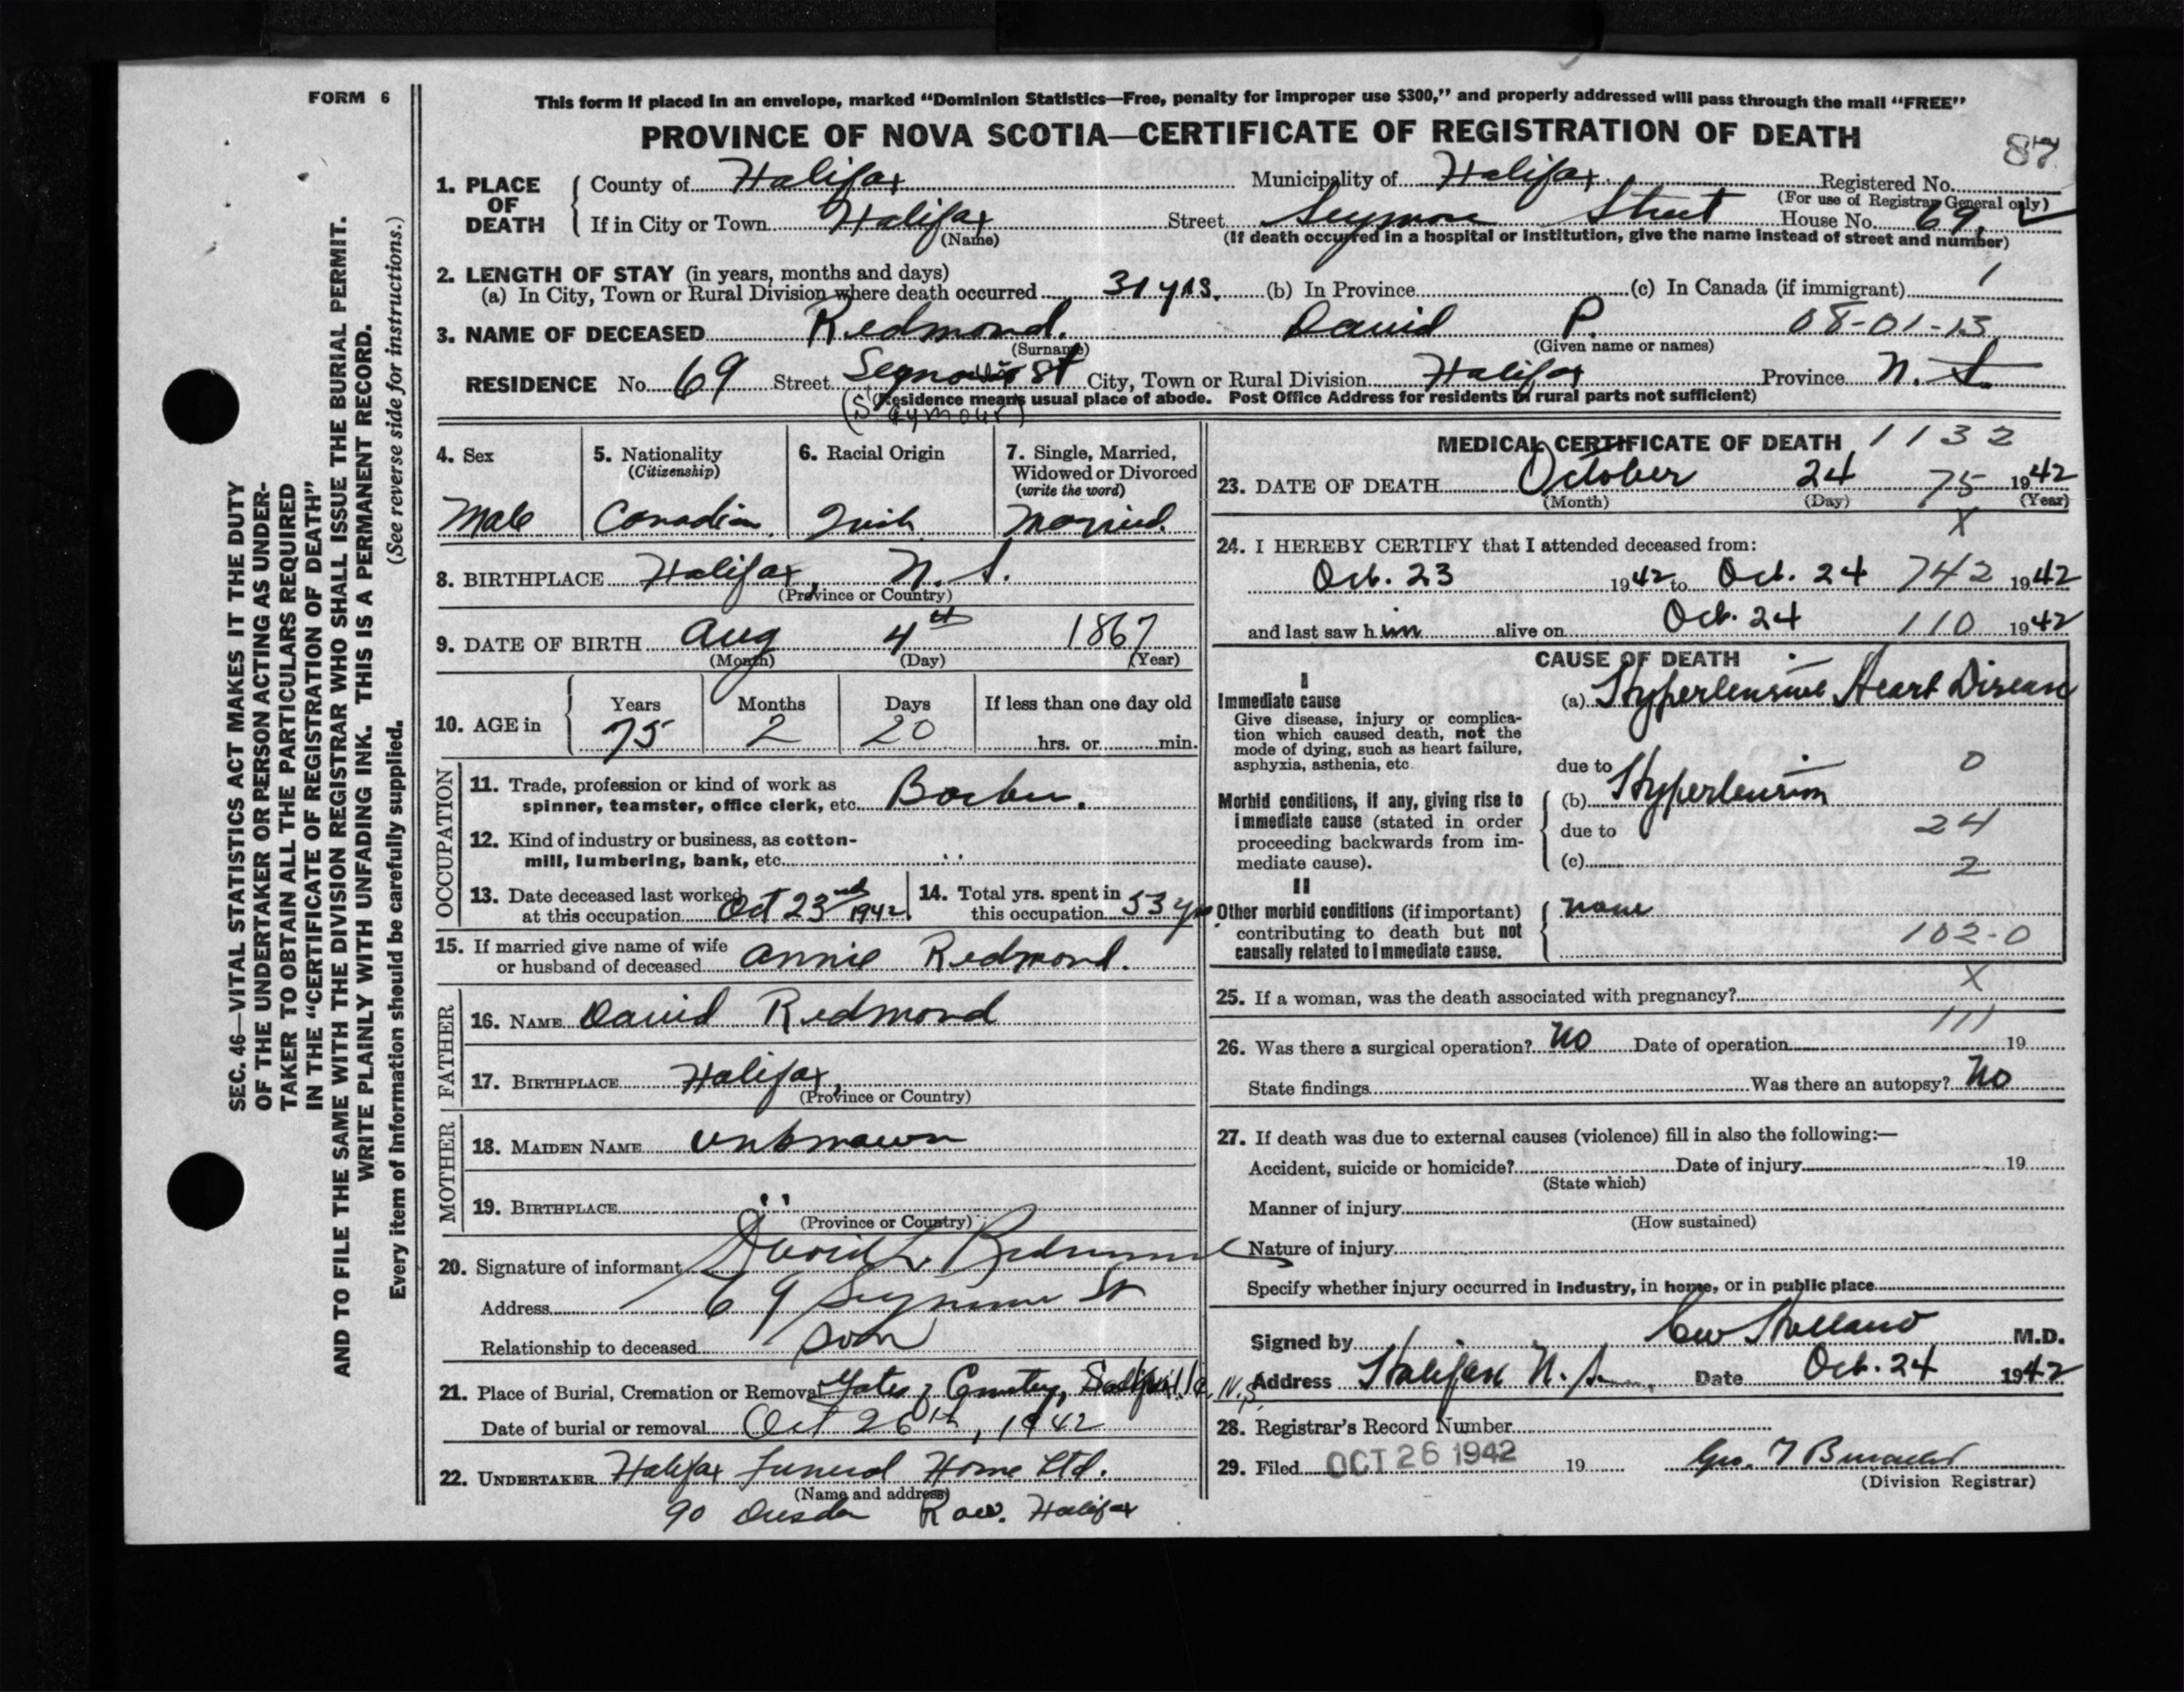 FORM 6
This form if placed in an envelope, marked “Dominion Statistics—Free, penalty for improper use $300,” and properly addressed will pass through the mail “FREE”
PROVINCE OF NOVA SCOTIA—CERTIFICATE OF REGISTRATION OF DEATH
87
1. PLACE OF DEATH
County of Halifax Municipality of Halifax Registered No.
(For use of Registrar General only)
If in City or Town Halifax Street Seymore Street House No. 69
(Name) (If death occurred in a hospital or institution, give the name instead of street and number)
2. LENGTH OF STAY (in years, months and days)
(a) In City, Town or Rural Division where death occurred 31 yrs. (b) In Province (c) In Canada (if immigrant) 1
3. NAME OF DECEASED Redmond. David P. 08-01-13
(Surname) (Given name or names)
RESIDENCE No. 69 Street St City, Town or Rural Division Halifax Province N.S.
(Residence means usual place of abode. Post Office Address for residents in rural parts not sufficient)
4. Sex
Male
5. Nationality
(Citizenship)
Canadian
6. Racial Origin
Irish
7. Single, Married,
Widowed or Divorced
(write the word)
Married.
8. BIRTHPLACE Halifax, N.S.
(Province or Country)
9. DATE OF BIRTH Aug 4th 1867
(Month) (Day) (Year)
10. AGE in
Years Months Days If less than one day old
75 2 20 hrs. or min.
OCCUPATION
11. Trade, profession or kind of work as
spinner, teamster, office clerk, etc. Barber.
12. Kind of industry or business, as cotton-
mill, lumbering, bank, etc. "
13. Date deceased last worked
at this occupation Oct 23rd 1942
14. Total yrs. spent in
this occupation 53 yrs
15. If married give name of wife
or husband of deceased Annie Redmond.
FATHER
16. NAME David Redmond
17. BIRTHPLACE Halifax,
(Province or Country)
MOTHER
18. MAIDEN NAME unknown
19. BIRTHPLACE "
(Province or Country)
20. Signature of informant David L. Redmond
Address 69 Seymour St
Relationship to deceased son
21. Place of Burial, Cremation or Removal Gates of Cemetery, Sackville, N.S.
Date of burial or removal Oct 26th, 1942
22. UNDERTAKER Halifax Funeral Home Ltd.
(Name and address)
90 Dresden Row. Halifax
MEDICAL CERTIFICATE OF DEATH 1132
23. DATE OF DEATH October 24 75 1942
(Month) (Day) (Year)
X
24. I HEREBY CERTIFY that I attended deceased from:
Oct. 23 1942 to Oct. 24 742 1942
and last saw him alive on Oct. 24 110 1942
CAUSE OF DEATH
I
Immediate cause
Give disease, injury or complica-
tion which caused death, not the
mode of dying, such as heart failure,
asphyxia, asthenia, etc.
(a) Hypertensive Heart Disease
due to 0
Morbid conditions, if any, giving rise to
immediate cause (stated in order
proceeding backwards from im-
mediate cause).
(b) Hypertension
due to 24
(c) 2
II
Other morbid conditions (if important)
contributing to death but not
causally related to immediate cause.
none
102-0
X
25. If a woman, was the death associated with pregnancy?
111
26. Was there a surgical operation? No Date of operation 19
State findings Was there an autopsy? No
27. If death was due to external causes (violence) fill in also the following:—
Accident, suicide or homicide? Date of injury 19
(State which)
Manner of injury
(How sustained)
Nature of injury
Specify whether injury occurred in industry, in home, or in public place
Signed by Holland M.D.
Address Halifax N.S. Date Oct. 24 1942
28. Registrar's Record Number
29. Filed OCT 26 1942 19 Geo. T
(Division Registrar)
SEC. 46—VITAL STATISTICS ACT MAKES IT THE DUTY
OF THE UNDERTAKER OR PERSON ACTING AS UNDER-
TAKER TO OBTAIN ALL THE PARTICULARS REQUIRED
IN THE “CERTIFICATE OF REGISTRATION OF DEATH”
AND TO FILE THE SAME WITH THE DIVISION REGISTRAR WHO SHALL ISSUE THE BURIAL PERMIT.
WRITE PLAINLY WITH UNFADING INK. THIS IS A PERMANENT RECORD.
Every item of information should be carefully supplied. (See reverse side for instructions.)